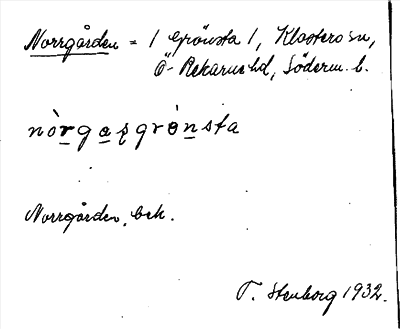 Norrgården = / Grönsta /, Klosters sn,
Ö- Rekarne hd, Söderm. l.
nòrgaṣgrònsta
Norrgården, bek.
T. Stenborg 1932.